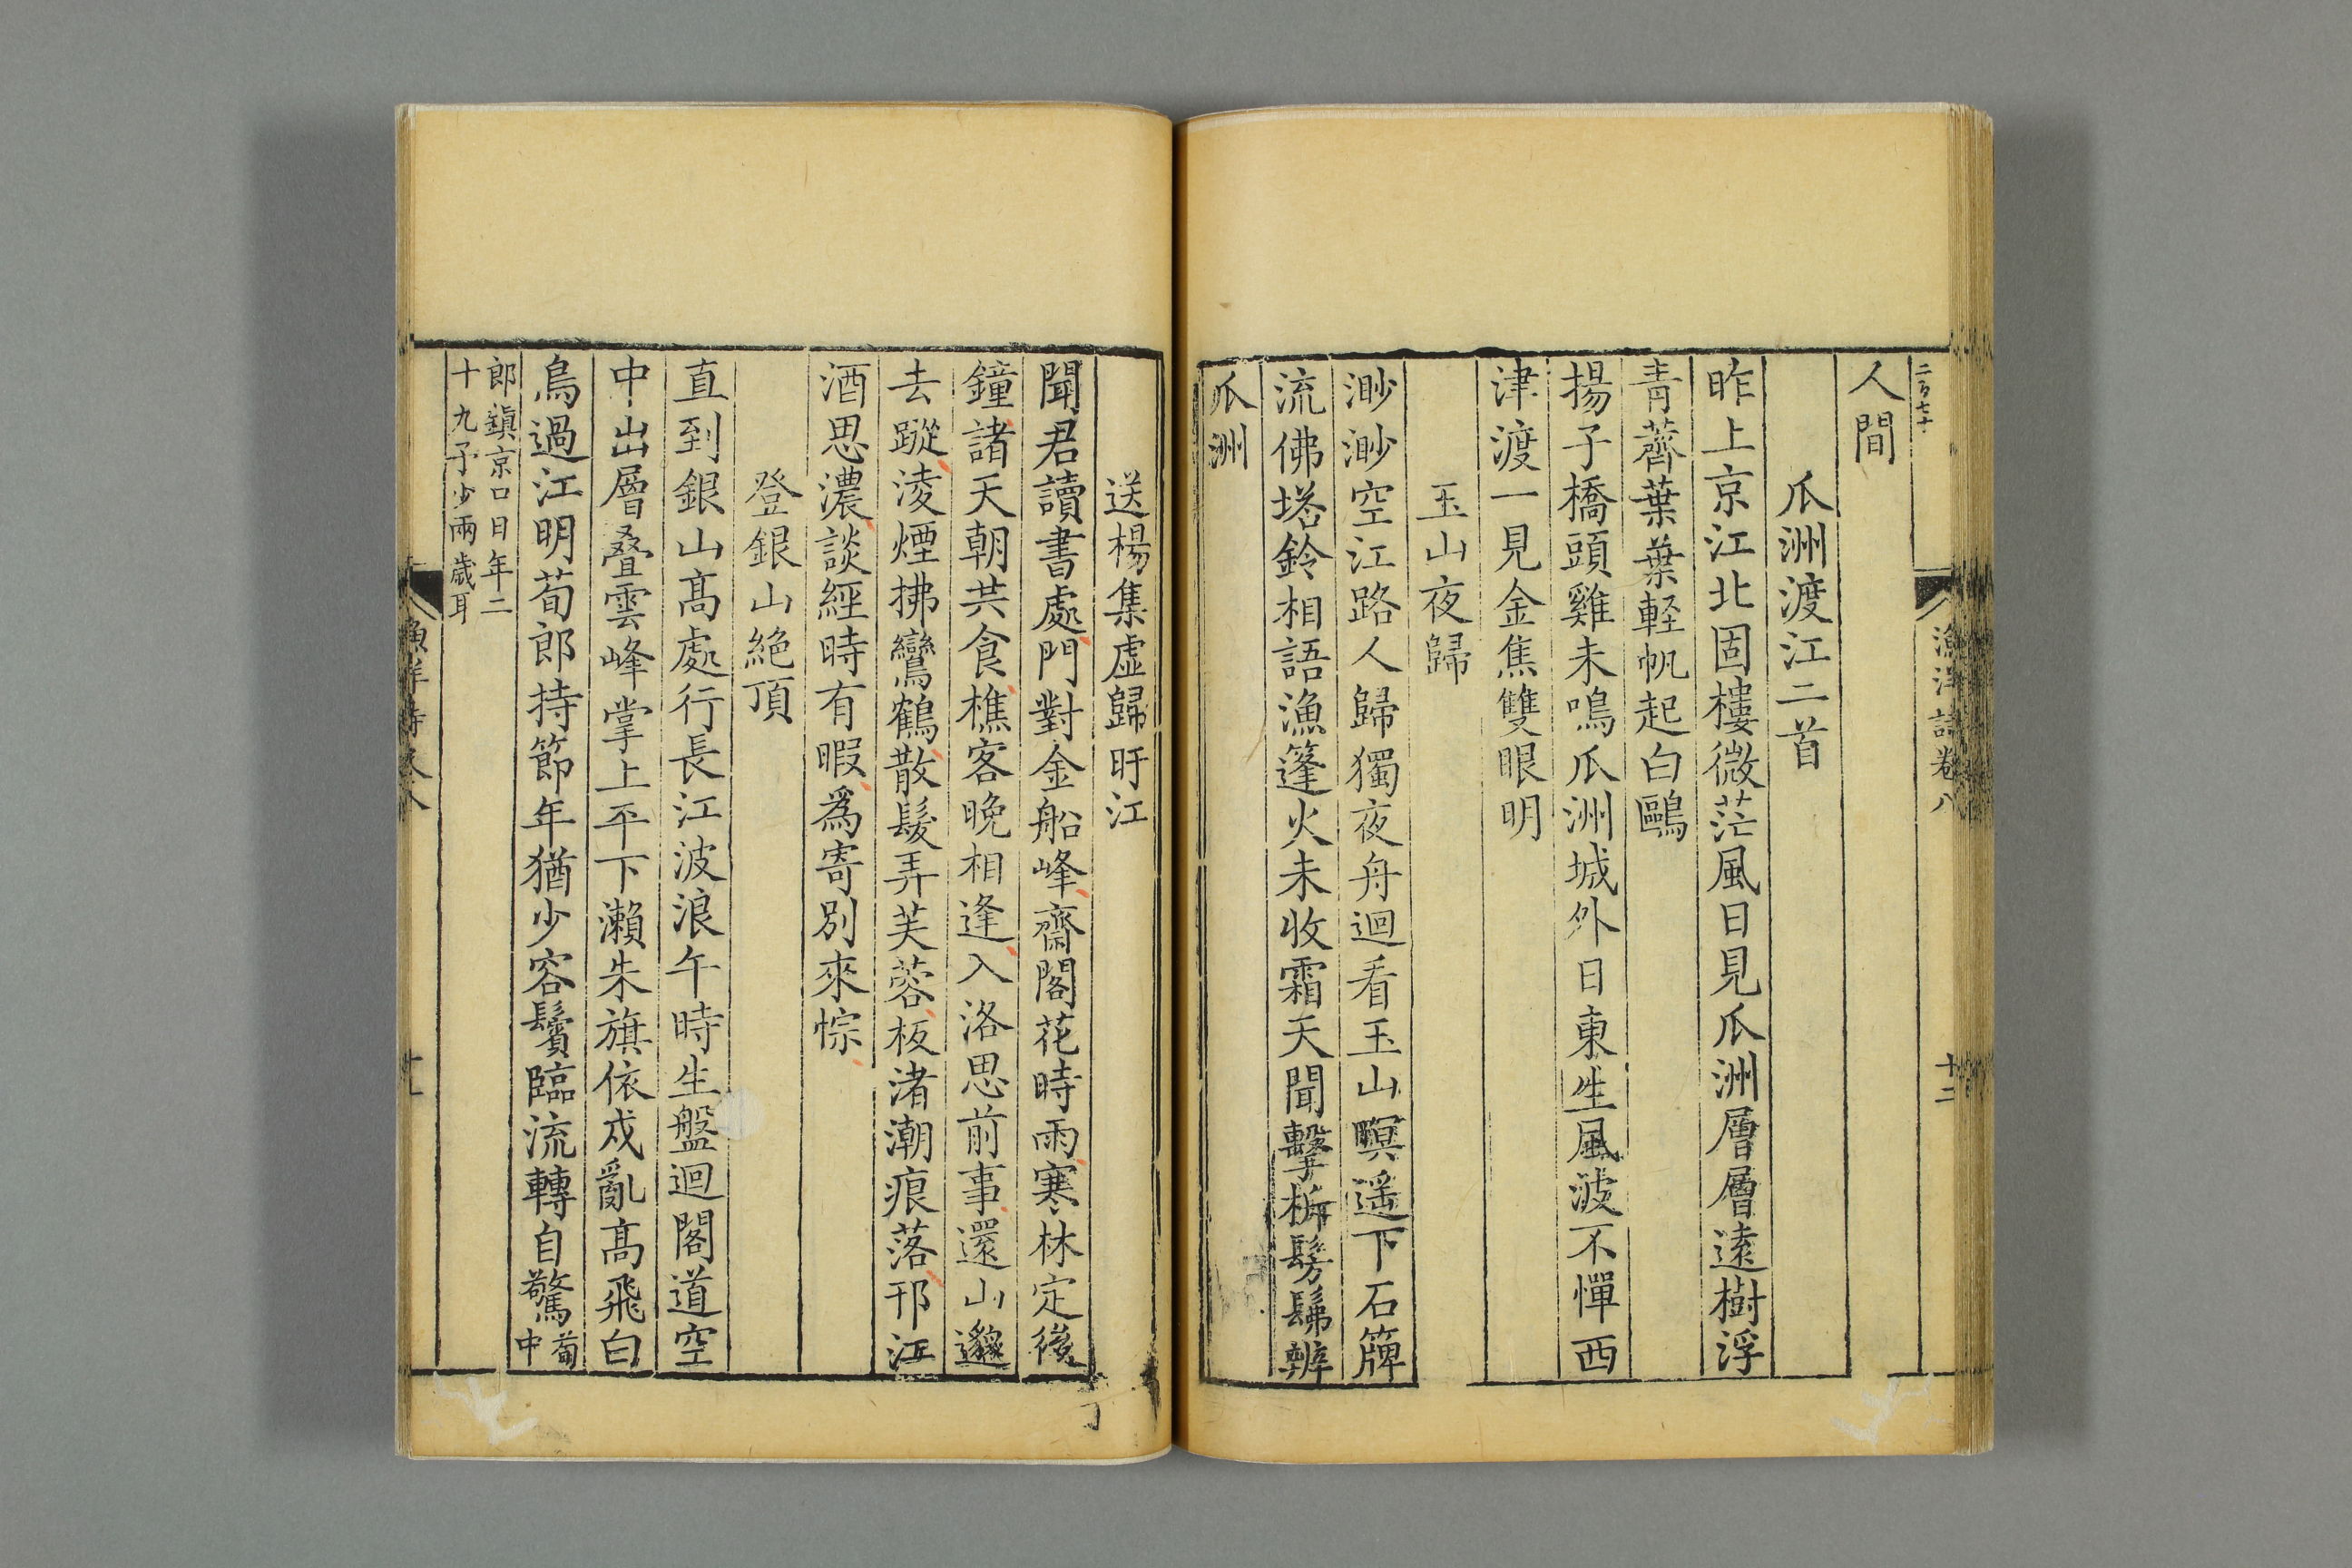 二百七十
漁洋詩卷八
十二
人間
瓜洲渡江二首
昨上京江北固樓微茫風日見瓜洲層層遠樹浮
青薺葉葉軽帆起白鷗
揚子橋頭雞未鳴瓜洲城外日東生風波不憚西
津渡一見金焦雙眼明
玉山夜歸
渺渺空江路人歸獨夜舟迴看玉山暝遥下石簰
流佛塔鈴相語漁篷火未收霜天聞擊柝髣髴辨
瓜洲
送楊集虛歸盱江
聞君讀書處門對金船峰齋閣花時雨寒林定後
鐘諸天朝共食樵客晚相逢入洛思前事還山邈
去蹤淩煙拂鸞鶴散髮弄芙蓉板渚潮痕落邗江
酒思濃談經時有暇爲寄別來悰
登銀山絶頂
直到銀山髙處行長江波浪午時生盤迴閣道空
中出層疊雲峰掌上平下瀨朱旗依戍亂髙飛白
鳥過江明荀郎持節年猶少容鬢臨流轉自驚荀中
郎鎮京口日年二
十九予少兩歲耳
漁洋詩卷八